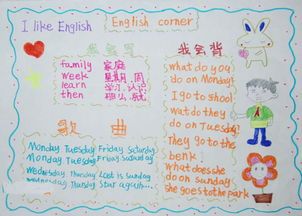 I like English
English corner
我会写
family 家庭
week 星期,周
learn 学习,认识
then 那么,就
我会背
what do you
do on Monday?
I go to shool
wat do they
do on Tuesday?
They go to the
benk!
What does she
do on Sunday
she goes to the park
歌曲
Monday Tuesday Friday Saturday
Monday Tuesday Friday Saturday
Wednesday Thursday Last is Sunday
Wednesday Thursday Star again...